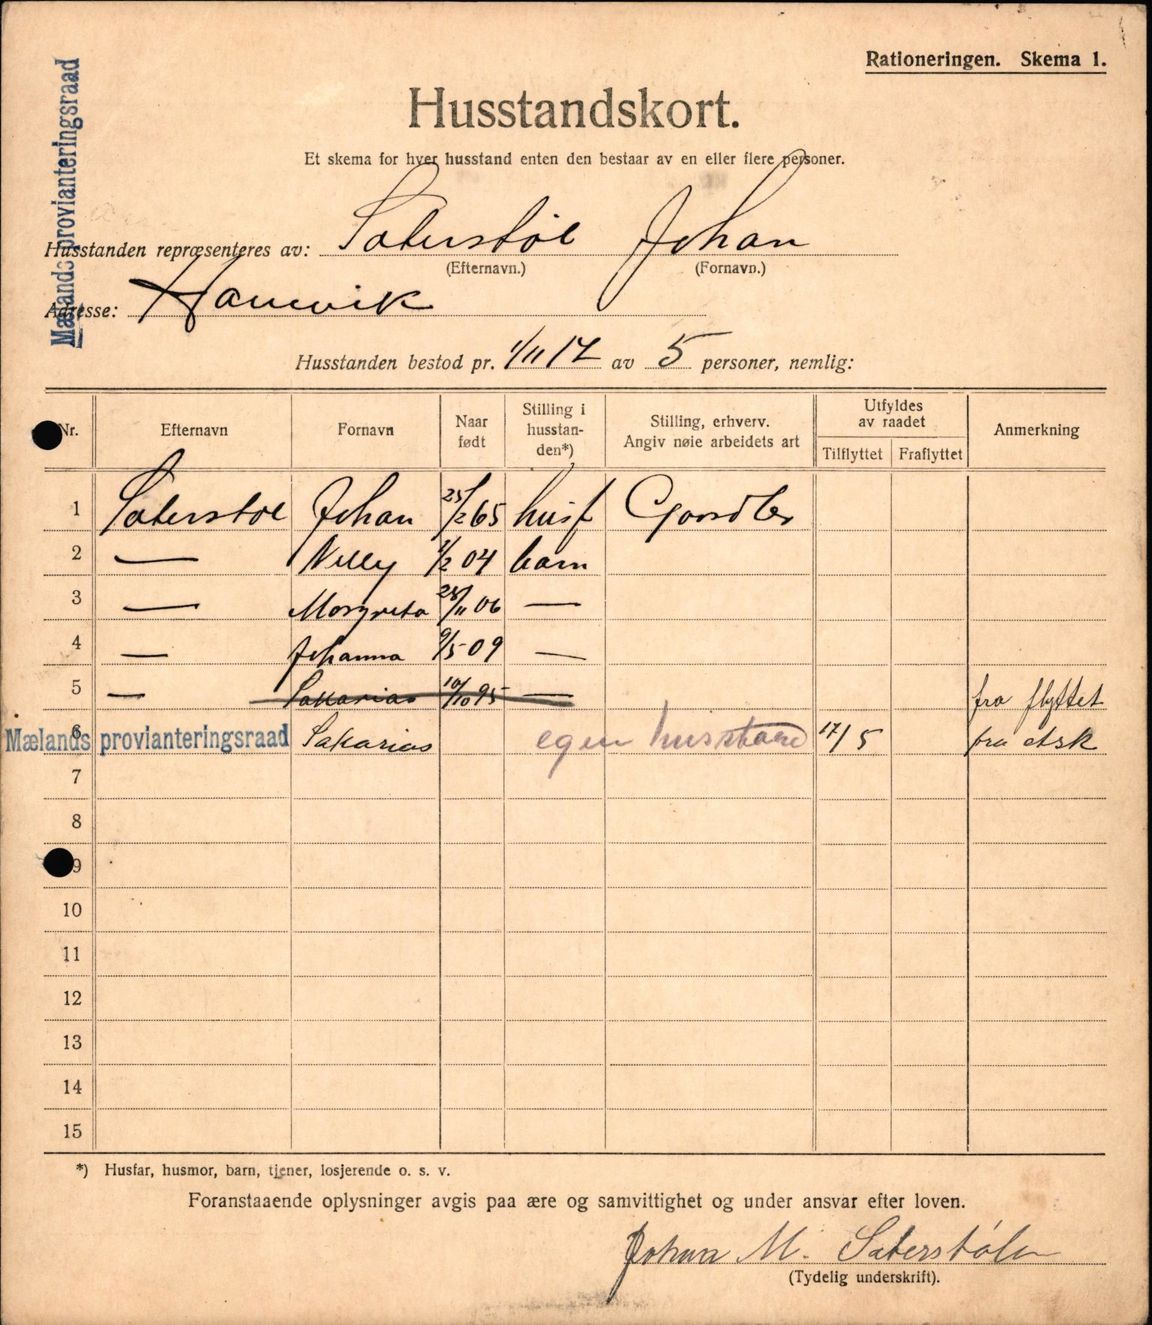 Rationeringen. Skema 1.
Mælands provianteringsraad
Husstandskort.
Et skema for hver husstand enten den bestaar av en eller flere personer.
Husstanden repræsenteres av: Saterstøl Johan
(Efternavn.) (Fornavn.)
Adresse:
Husstanden bestod pr. 1/11 17 av 5 personer, nemlig:
Nr. Efternavn Fornavn Naar født Stilling i husstanden*) Stilling, erhverv. Angiv nøie arbeidets art Utfyldes av raadet Tilflyttet Fraflyttet Anmerkning
1 Saterstøl Johan 25/2 65 husf
2 — Nelly 1/2 04 barn
3 — Margreta 28/11 06 —
4 — Johanna 9/5 09 —
5 — Sakarias 10/10 95 — fra flyttet
6 Mælands provianteringsraad Sakarias egen husstand 17/5 fra
7
8
9
10
11
12
13
14
15
*) Husfar, husmor, barn, tjener, losjerende o. s. v.
Foranstaaende oplysninger avgis paa ære og samvittighet og under ansvar efter loven.
Johan M. Saterstølen
(Tydelig underskrift).